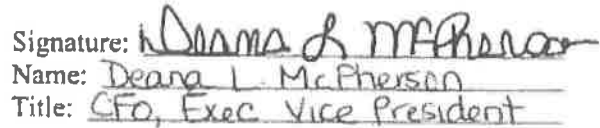 Signature: Deana L McPherson
Name: Deana L. McPherson
Title: CFO, Exec Vice President